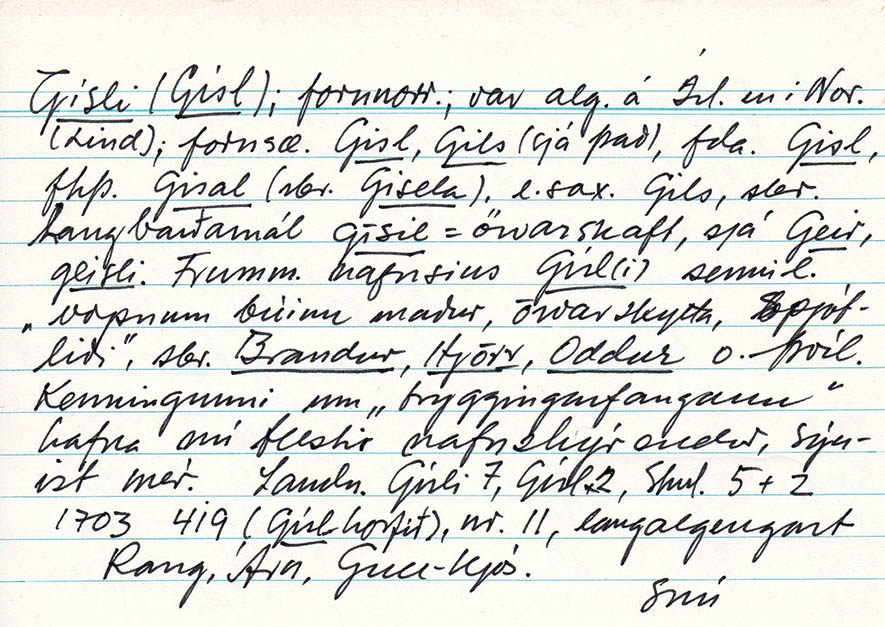 Gísli (Gísl); fornnorr.; var alg. á Ísl. en í Nor.
(Lind); fornsæ. Gisl, Gils (sjá það), fda. Gisl,
fhþ. Gisal (sbr. Gisela), e.sax. Gils, sbr.
Langbarðamál gīsil = örvarskaft, sjá Geir,
geisli. Frumm. nafnsins Gísl(i) sennil.
„vopnum búinn maður, örvarskytta, spjót-
liði“, sbr. Brandur, Hjörr, Oddur o. þvíl.
Kenningunni um „tryggingarfangann“
hafna nú flestir nafnskýrendur, sýn-
ist mér. Landn. Gísli 7, Gísl 2, Sturl. 5 + 2
1703 419 (Gísl horfið), nr. 11, langalgengast
Rang, Árn, Gull-Kjós.